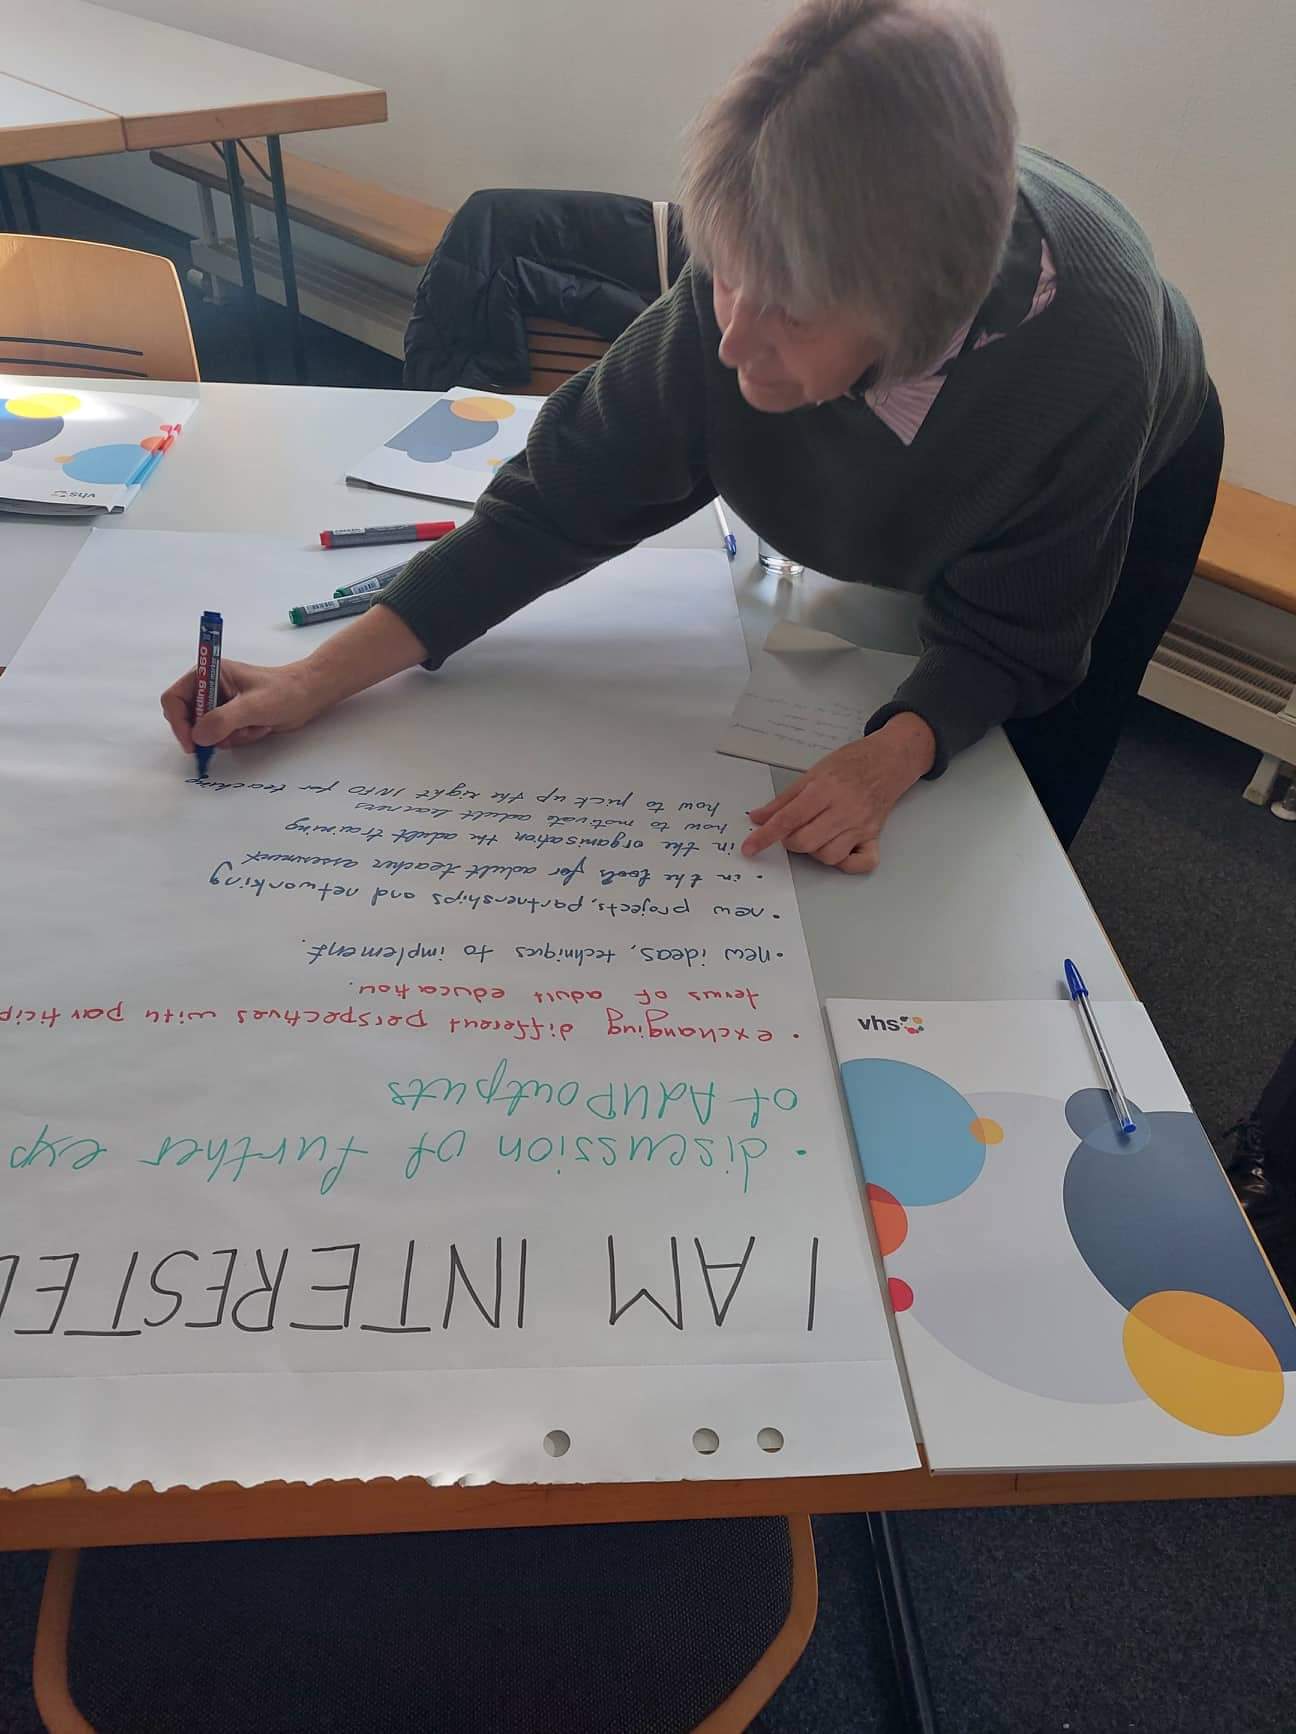 I AM INTERESTED
• discussion of further exp
of AdUP outputs
• exchanging different perspectives with particip
terms of adult education.
• new ideas, techniques to implement.
• new projects, partnerships and networking
• in the tools for adult teacher assessment
• in the organisation the adult training
• how to motivate adult learners
• how to pick up the right INFO for teaching
edding 360
vhs
vhs